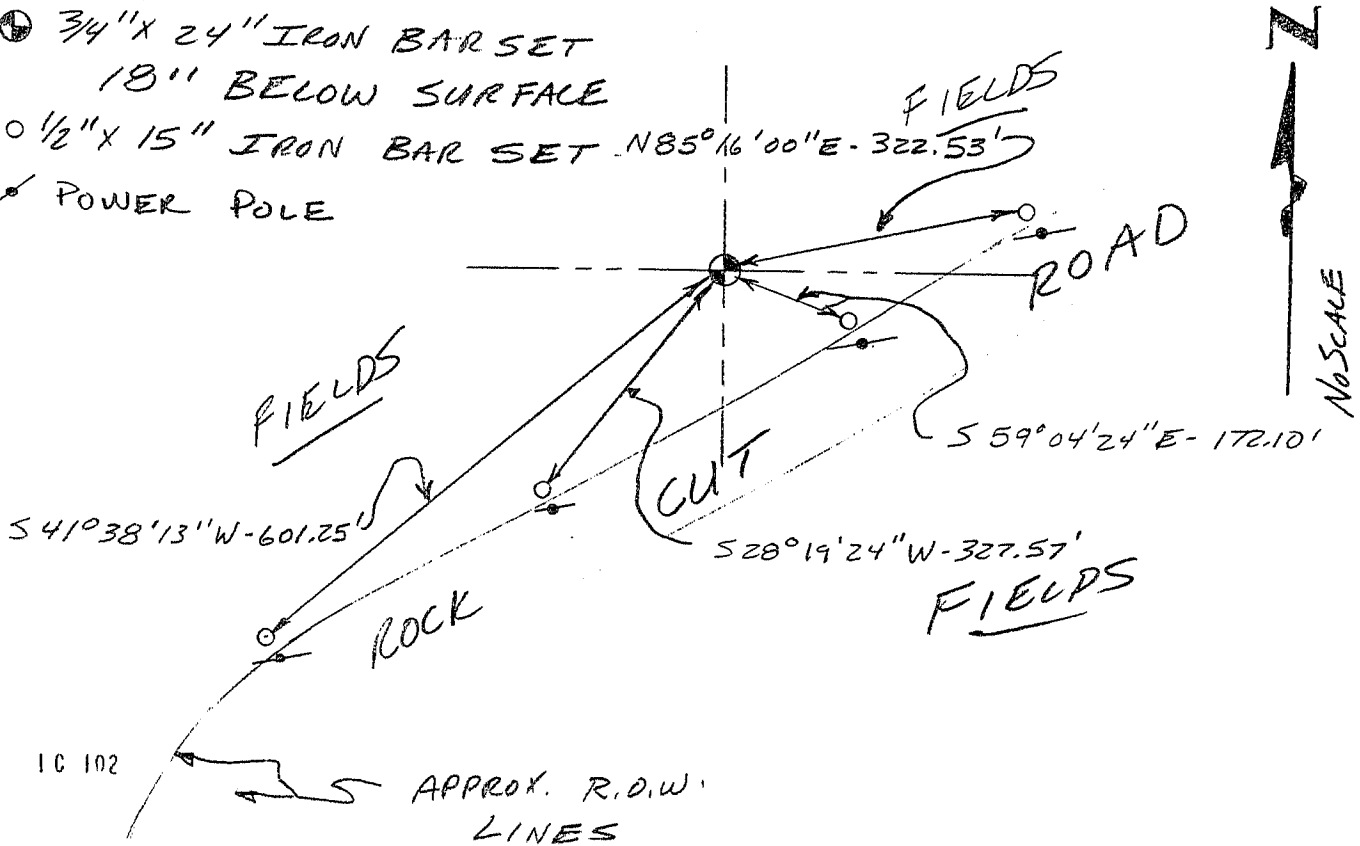 3/4"X 24" IRON BAR SET
18" BELOW SURFACE
1/2"X 15" IRON BAR SET
POWER POLE
N85°16'00"E-322.53'
FIELDS
N
ROAD
NO SCALE
FIELDS
S 59°04'24"E-172.10'
CUT
S 41°38'13"W-601.25'
S28°19'24"W-327.57'
FIELDS
ROCK
IC 102
APPROX. R.O.W.
LINES